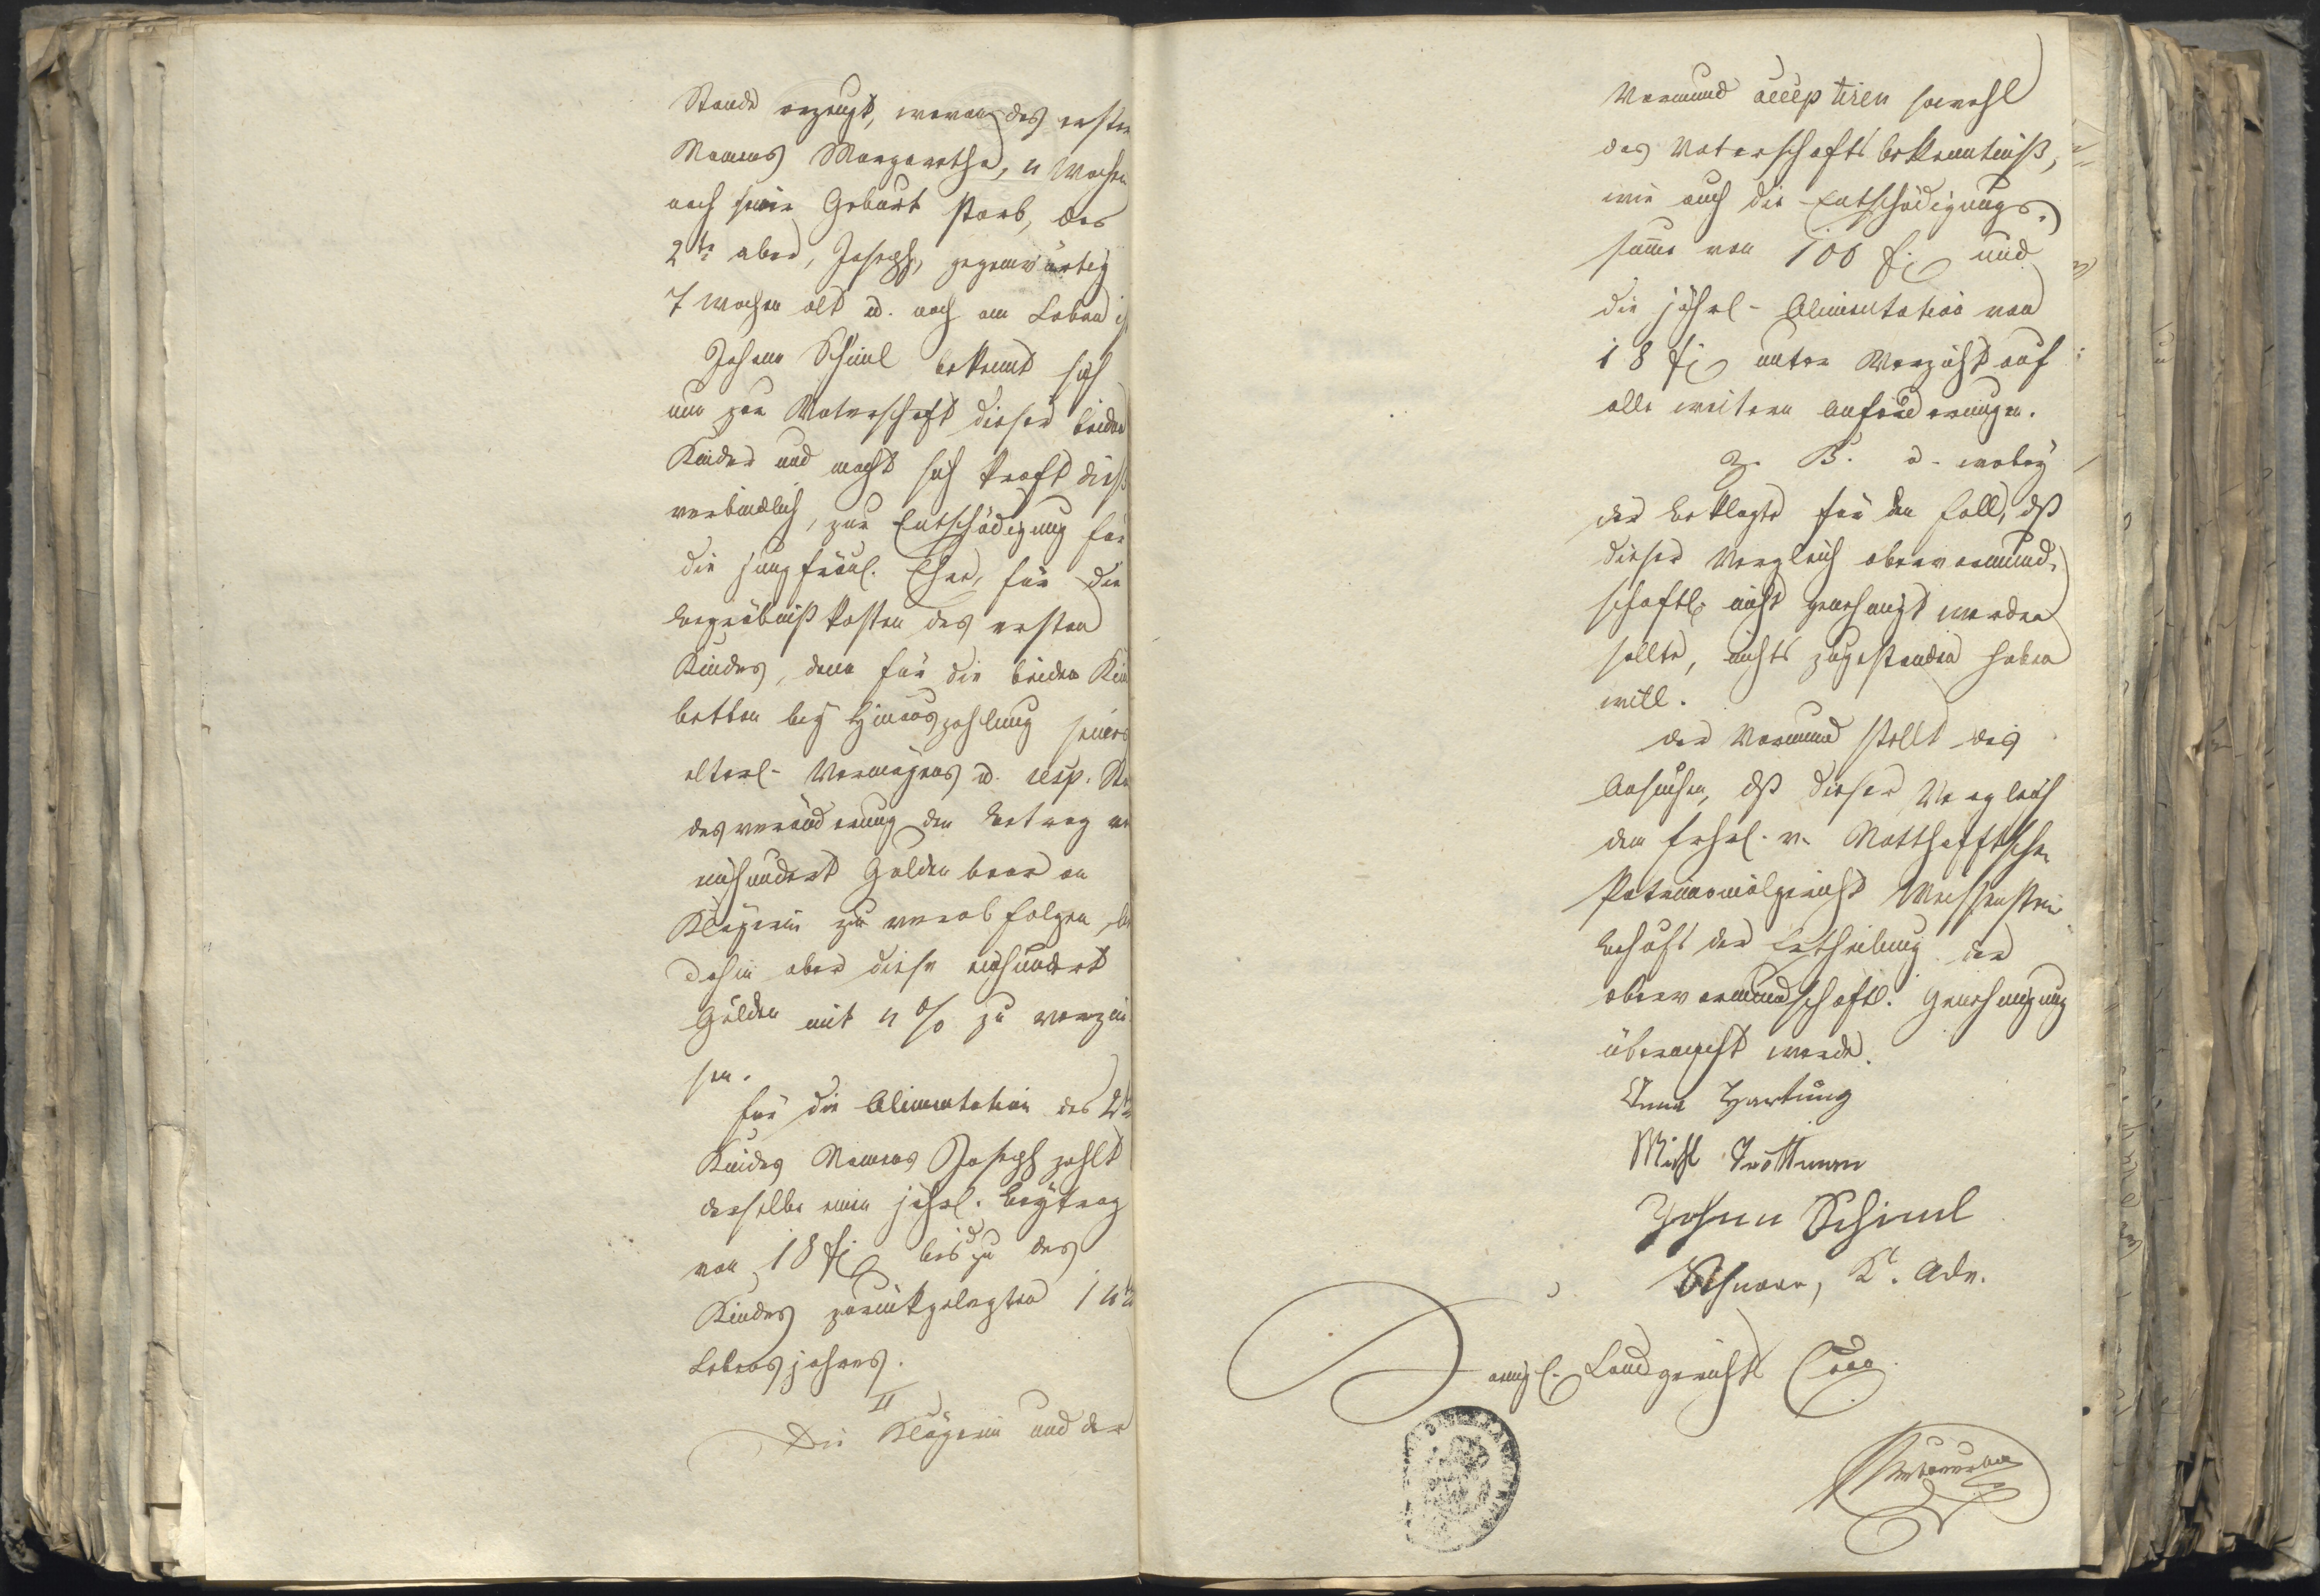 Stande erzeugt, wovon das erste
Namens Margaretha, 4 Wochen
nach seiner Geburt starb, das
2te aber, Joseph, gegenwärtig
7 Wochen alt u. noch am Leben ist
Johann Schiml bekennt sich
nun zur Vaterschaft dieser beiden
Kinder und macht sich kraft dieß
verbindlich, zur Entschädigung für
die jungfräul. Ehre, für die
Begräbnißkosten des ersten
Kindes, dann für die beiden Kind
betten bey Hinauszahlung seines
elterl. Vermögens u. resp. Stan
desveränderung den Betrag von
einhundert Gulden baar an
Klägerin zu verabfolgen, bis
dahin aber diese einhundert
Gulden mit 4 % zu verzin
sen.
Für die Alimentation des 2ten
Kindes Namens Joseph zahlt
derselbe einen jährl. Beytrag
von 18 f bis zu des
Kindes zurückgelegten 14ten
Lebensjahres.
II
Die Klägerin und der
Vormund acceptiren sowohl
das Vaterschaftsbekenntniß,
wie auch die Entschädigungs-
summe von 100 f und
die jährl. Alimentation von
18 f unter Verzicht auf
alle weitern Anforderungen.
Z. B. u. wobey
der Beklagte für den Fall, dß
dieser Vergleich obervormund-
schaftl. nicht genehmigt werden
sollte, nichts zugestanden haben
will.
Der Vormund stellt das
Ansuchen, dß dieser Vergleich
dem Frhrl. v. Notthafftschen
Patrimonialgericht Weissenstein
behufs der Ertheilung der
obervormundschaftl. Genehmigung
übermacht werde.
Anna Hartung
Michl Trottmann
Johann Schiml
Schnorr, K. Adv.
Königl. Landgericht